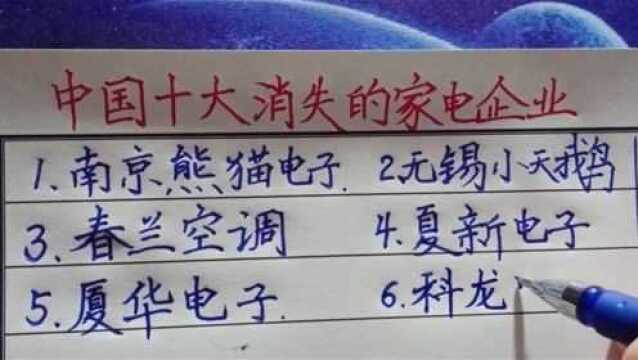 中国十大消失的家电企业
1.南京熊猫电子. 2.无锡小天鹅
3.春兰空调 4.夏新电子
5.厦华电子. 6.科龙